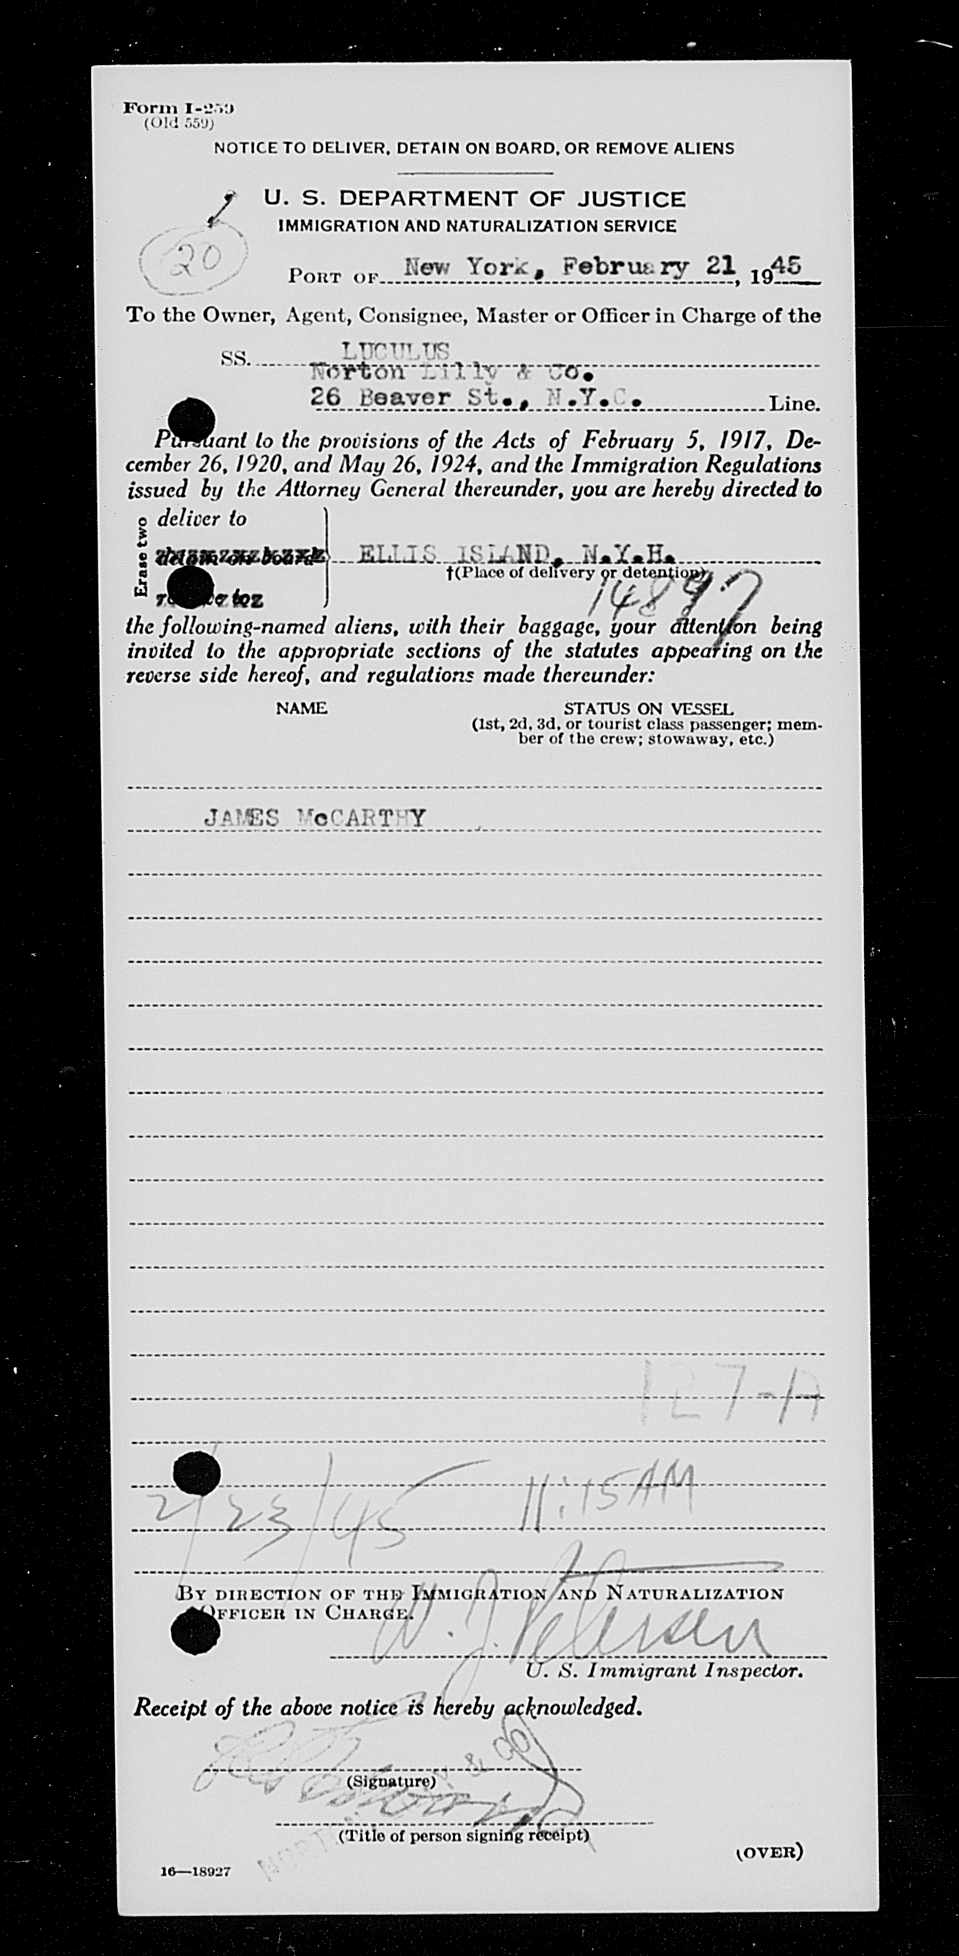 Form I-259
(Old 559)
NOTICE TO DELIVER, DETAIN ON BOARD, OR REMOVE ALIENS
U. S. DEPARTMENT OF JUSTICE
IMMIGRATION AND NATURALIZATION SERVICE
20
PORT OF New York, February 21, 1945
To the Owner, Agent, Consignee, Master or Officer in Charge of the
SS. LUCULUS
Norton Lilly & Co.
26 Beaver St., N.Y.C. Line.
Pursuant to the provisions of the Acts of February 5, 1917, De-
cember 26, 1920, and May 26, 1924, and the Immigration Regulations
issued by the Attorney General thereunder, you are hereby directed to
Erase two
deliver to
detain on board ELLIS ISLAND, N.Y.H.
†(Place of delivery or detention)
remove to
14897
the following-named aliens, with their baggage, your attention being
invited to the appropriate sections of the statutes appearing on the
reverse side hereof, and regulations made thereunder:
NAME STATUS ON VESSEL
(1st, 2d, 3d, or tourist class passenger; mem-
ber of the crew; stowaway, etc.)
JAMES McCARTHY
127-A
2/23/45 11:15 AM
BY DIRECTION OF THE IMMIGRATION AND NATURALIZATION
OFFICER IN CHARGE.
W. J. Petersen
U. S. Immigrant Inspector.
Receipt of the above notice is hereby acknowledged.
(Signature)
(Title of person signing receipt)
(OVER)
16—18927